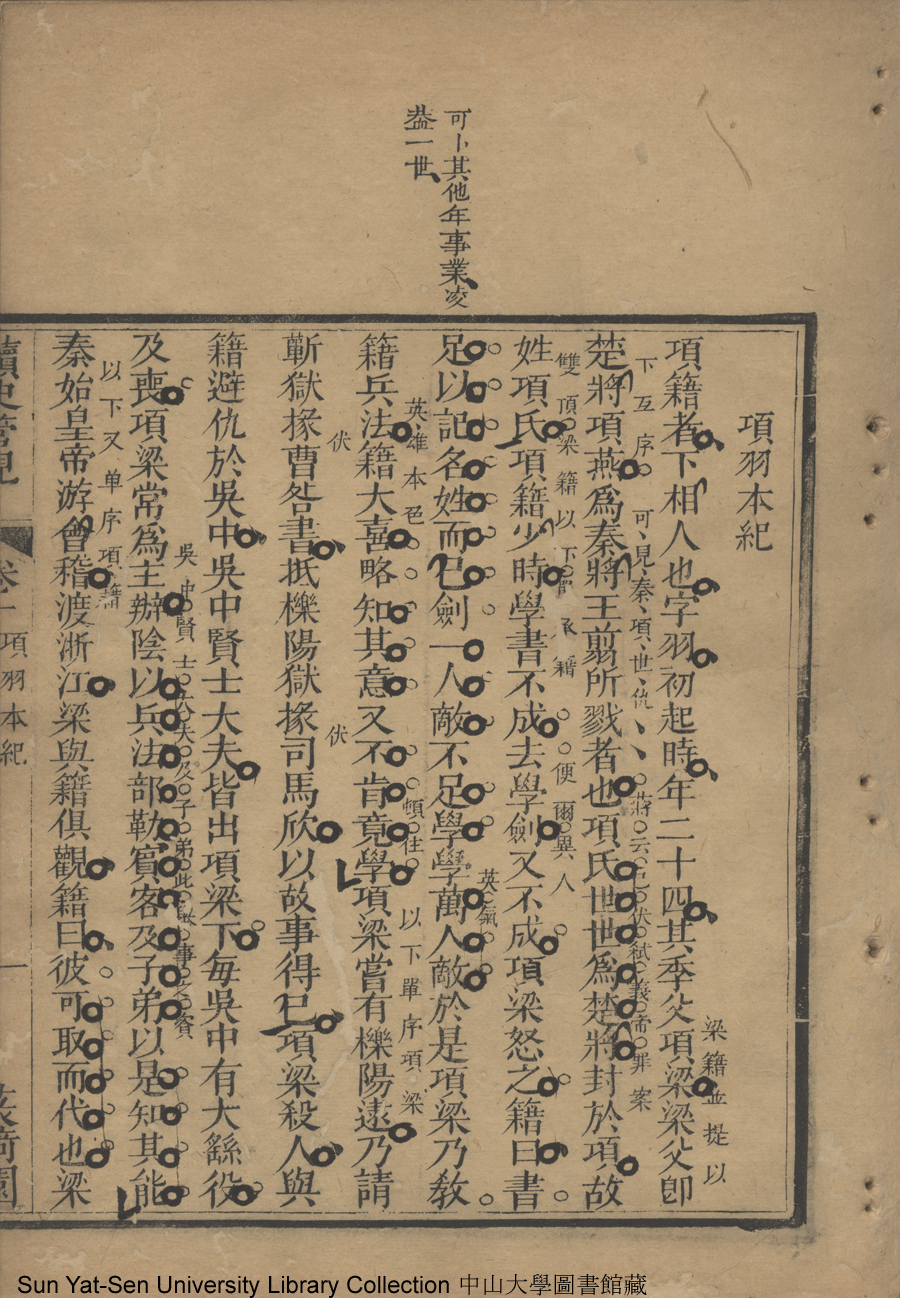 可卜其他年事業凌
葢一世
項羽本紀
項籍者下相人也字羽初起時年二十四其季父項梁梁父卽
梁籍並提以
下互序
可見秦項世仇
蔣云已伏弑義帝罪案
楚將項燕爲秦將王翦所戮者也項氏世世爲楚將封於項故
雙頂梁籍以下
籍
便爾異人
姓項氏項籍少時學書不成去學劍又不成項梁怒之籍曰書
英氣
足以記名姓而已劍一人敵不足學學萬人敵於是項梁乃敎
英雄本色
頓住
以下單序項梁
籍兵法籍大喜略知其意又不肯竟學項梁嘗有櫟陽逮乃請
伏
伏
蘄獄掾曹咎書抵櫟陽獄掾司馬欣以故事得已項梁殺人與
籍避仇於吳中吳中賢士大夫皆出項梁下每吳中有大繇役
吳中賢士大夫及子弟此
事立賓
及喪項梁常爲主辦陰以兵法部勒賓客及子弟以是知其能
以下又单序項籍
秦始皇帝游會稽渡浙江梁與籍俱觀籍曰彼可取而代也梁
讀史管見
卷一
項羽本紀
一